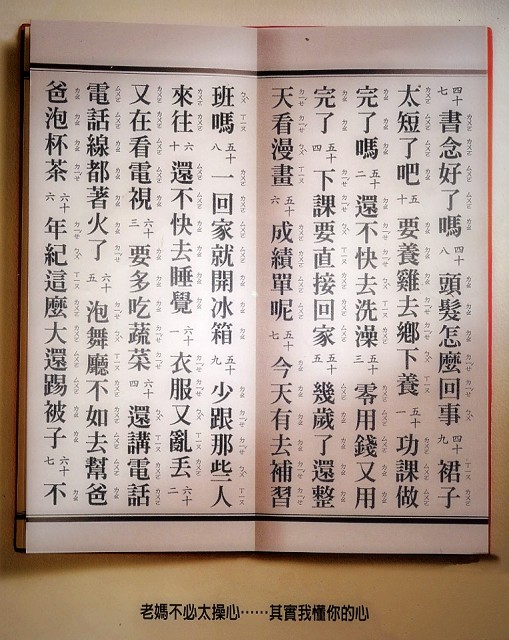 四十七書念好了嗎四十八頭髮怎麼回事四十九裙子
太短了吧五十要養雞去鄉下養五十一功課做
完了嗎五十二還不快去洗澡五十三零用錢又用
完了五十四下課要直接回家五十五幾歲了還整
天看漫畫五十六成績單呢五十七今天有去補習
班嗎五十八一回家就開冰箱五十九少跟那些人
來往六十還不快去睡覺六十一衣服又亂丟六十二
又在看電視六十三要多吃蔬菜六十四還講電話
電話線都著火了六十五泡舞廳不如去幫爸
爸泡杯茶六十六年紀這麼大還踢被子六十七不
老媽不必太操心……其實我懂你的心